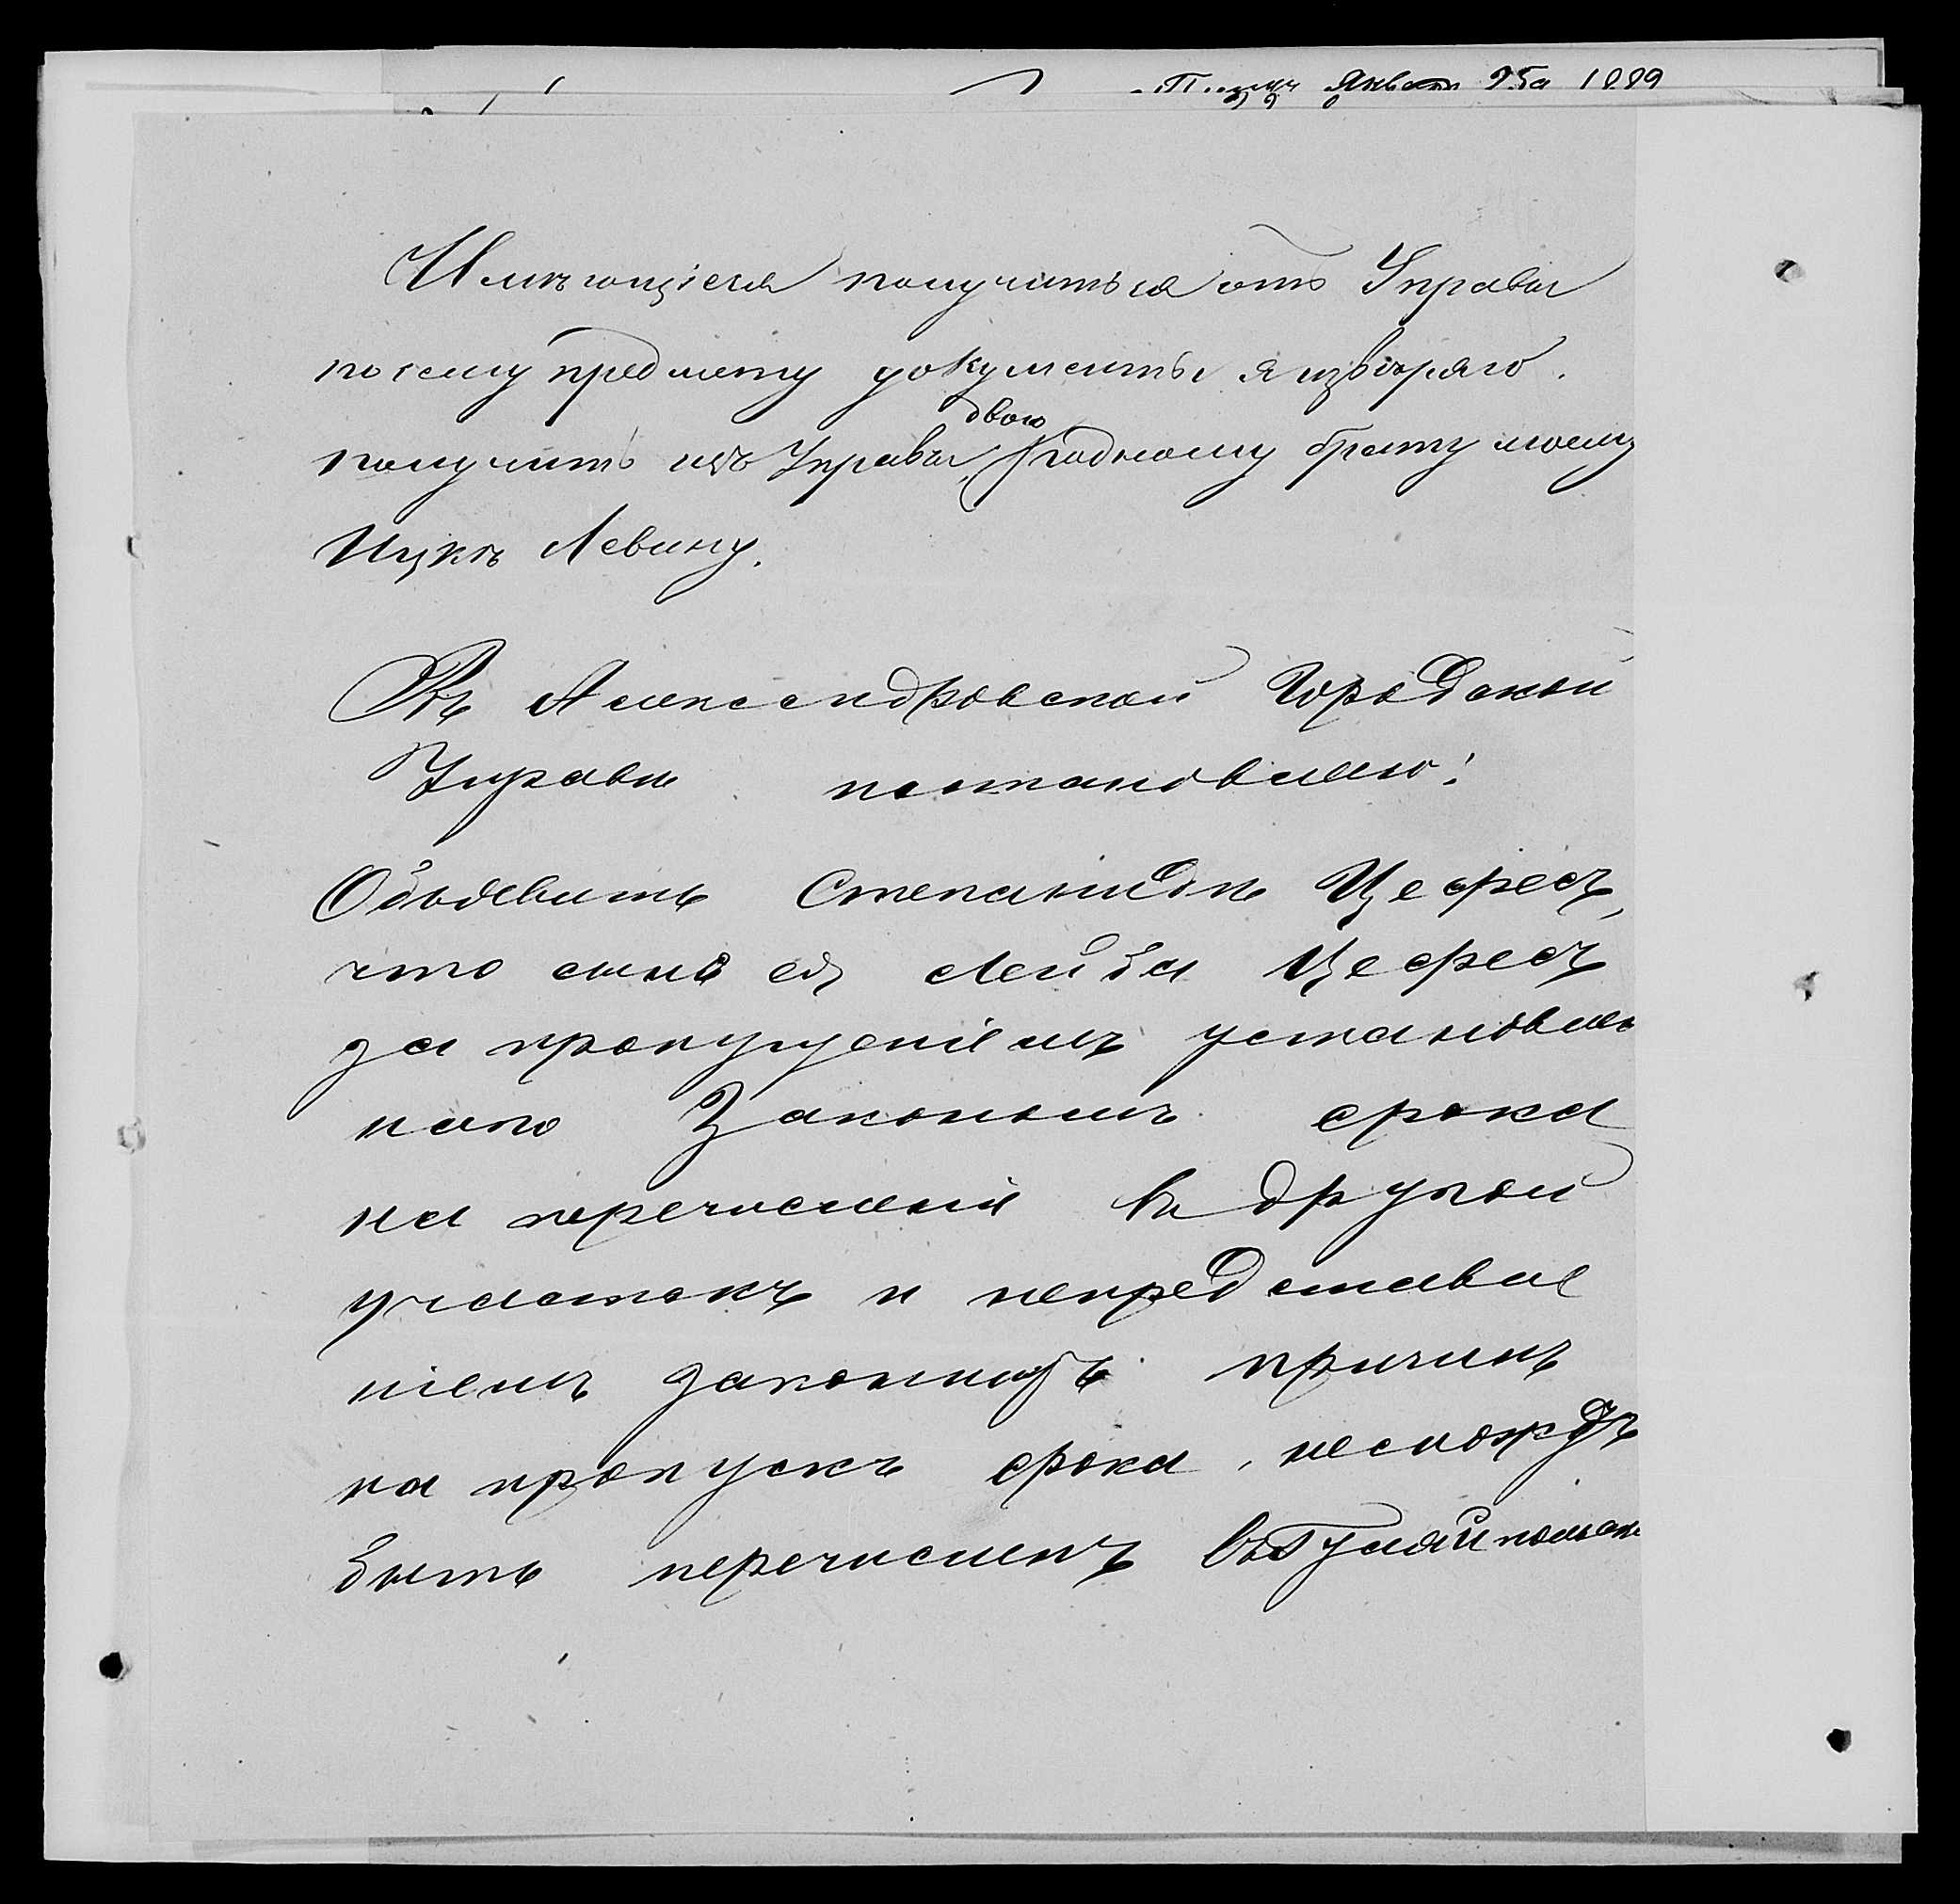 Января 25 д 1889
Имѣющіеся получиться отъ Управы
по сему предмету документы я извѣряю
получить изъ Управы, двою
родному брату моему
Ицкѣ Левину.
Въ Александровской Городской
Управѣ постановлено:
Объявить Степанидѣ Цефесъ,
что сынъ ея Лейба Цефесъ
за пропущеніемъ установлен
наго Закономъ срока
на перечисленіе въ другой
участокъ и непредставле
ніемъ законныхъ причинъ
на пропускъ срока, не можетъ
быть перечисленъ въ Гуляйпольскі